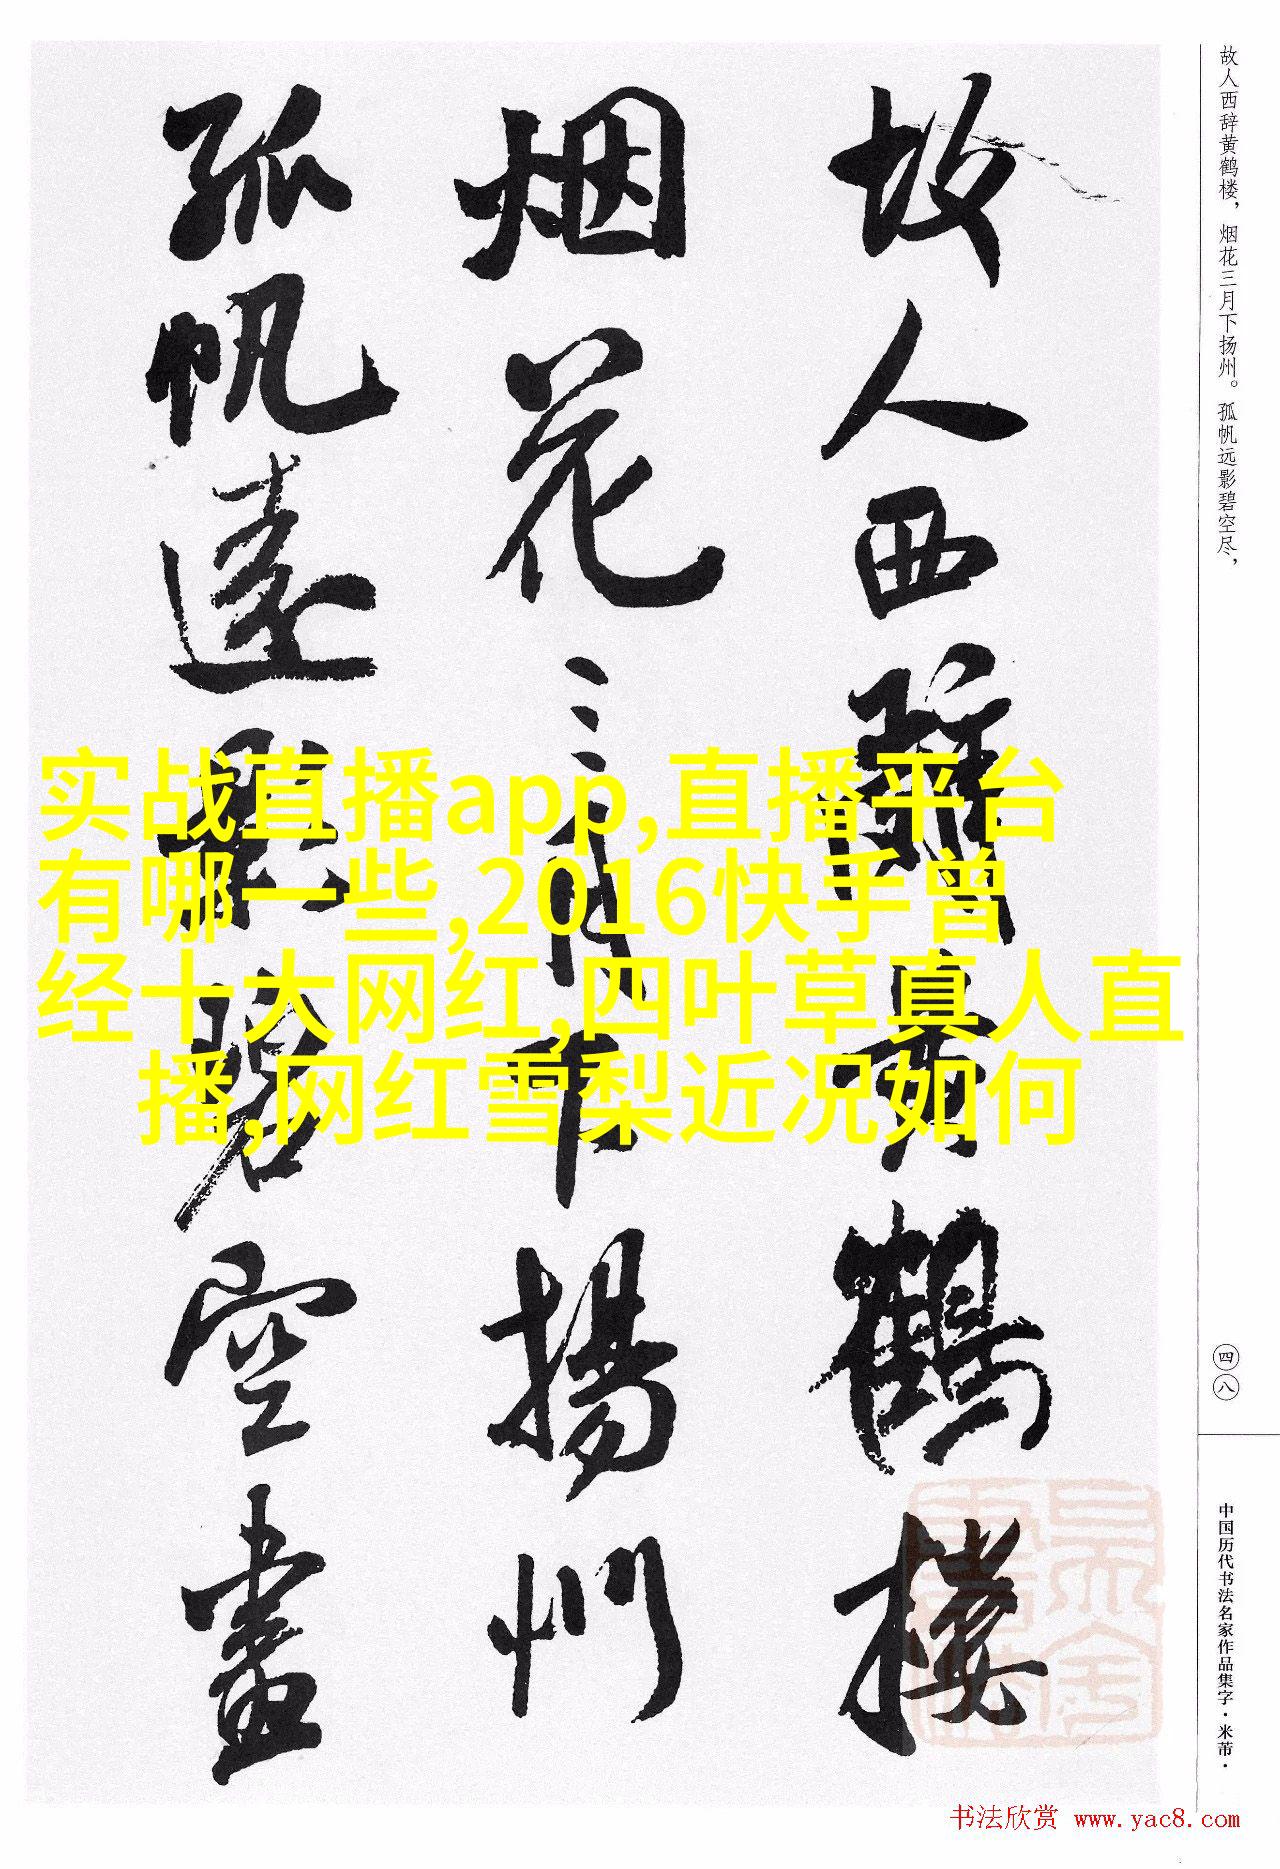 故人西辞黄鹤楼，烟花三月下扬州。孤帆远影碧空尽，
故人西辭黄鶴楼
烟花三月下揚州
孤帆遠影碧空盡
实战直播app,直播平台
有哪一些,2016快手曾
经十大网红,四叶草真人直
播,网红雪梨近况如何
四八
中国历代书法名家作品集字·米芾·
书法欣赏 www.yac8.com